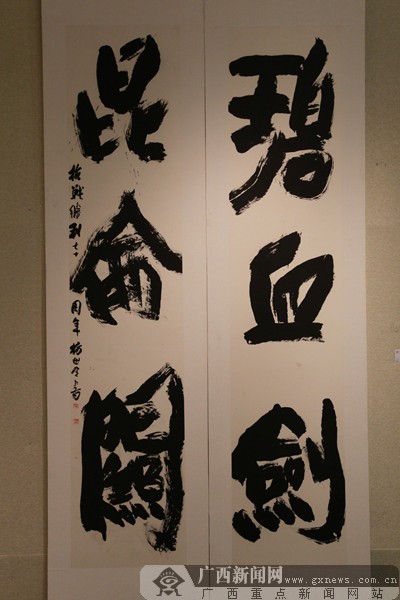 碧血劍
昆侖關
抗戰勝利
周年
广西新闻网 www.gxnews.com.cn
广西重点新闻网站